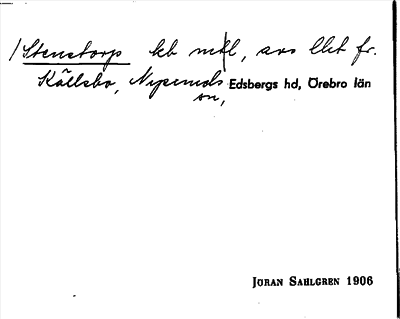 /Stenstorp kb mtl, avs llet fr.
Källsbo, Nysunds Edsbergs hd, Örebro län
sn,
JÖRAN SAHLGREN 1906